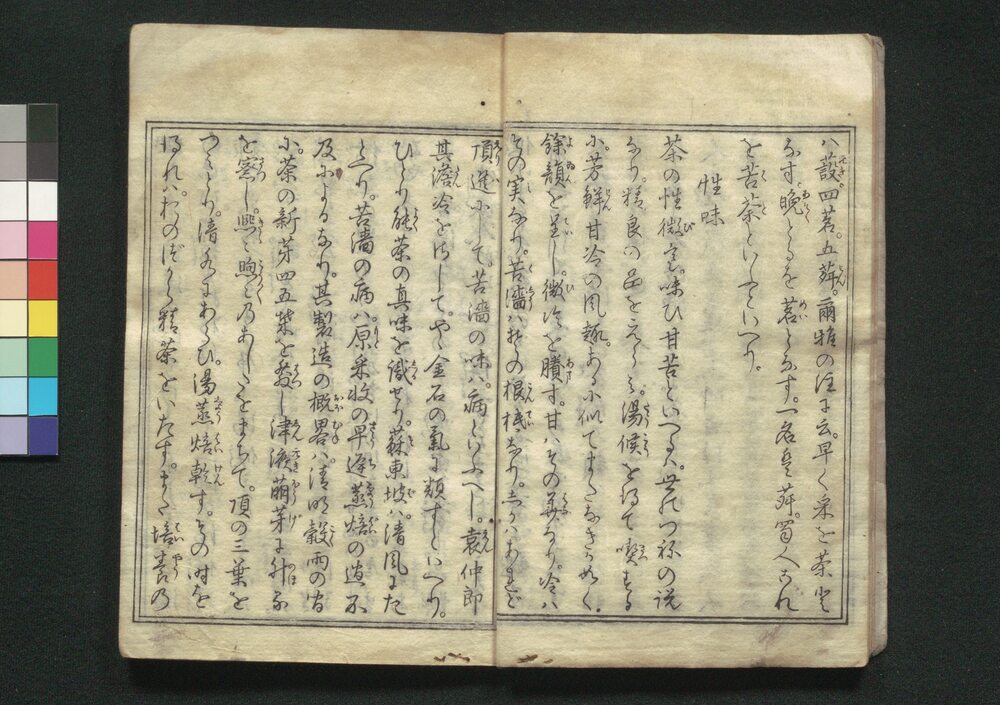 ハ蔎。四茗。五荈。爾雅の注に云。早く采を茶と
なす。晩くとるを茗となす。一名は荈。蜀人これ
を苦茶といふといへり。
性味
茶の性微寒。味ひ甘苦といへるハ。
なり。精良の品をえらミ。湯候を得て喫する
に。芳鮮甘冷の風趣。あるに似てまたなきか如く。
餘韻を呈し。微冷を賸す。甘ハその華なり。冷ハ
その実なり。苦濇ハその根柢なり。しかハあれど
頂進にして。苦濇の味ハ。病といふべし。袁仲郎
其澹冷をほして。やゝ金石の氣に類すといへり。
ひとり能茶の真味を識せり。蘇東坡ハ清風にた
とへり。苦濇の病ハ。原采收の早遅蒸焙の過不
及によるなり。其製造の概畧ハ。清明穀雨の間
に。茶の新芽四五葉を發し津液萌芽に升る
を察し。煕々晌々乃あしたをまちて。頂の三葉を
つミとり。清水にあらひ。湯蒸焙乾す。その時を
得れハ。おのづから精茶をいたす。また培養乃